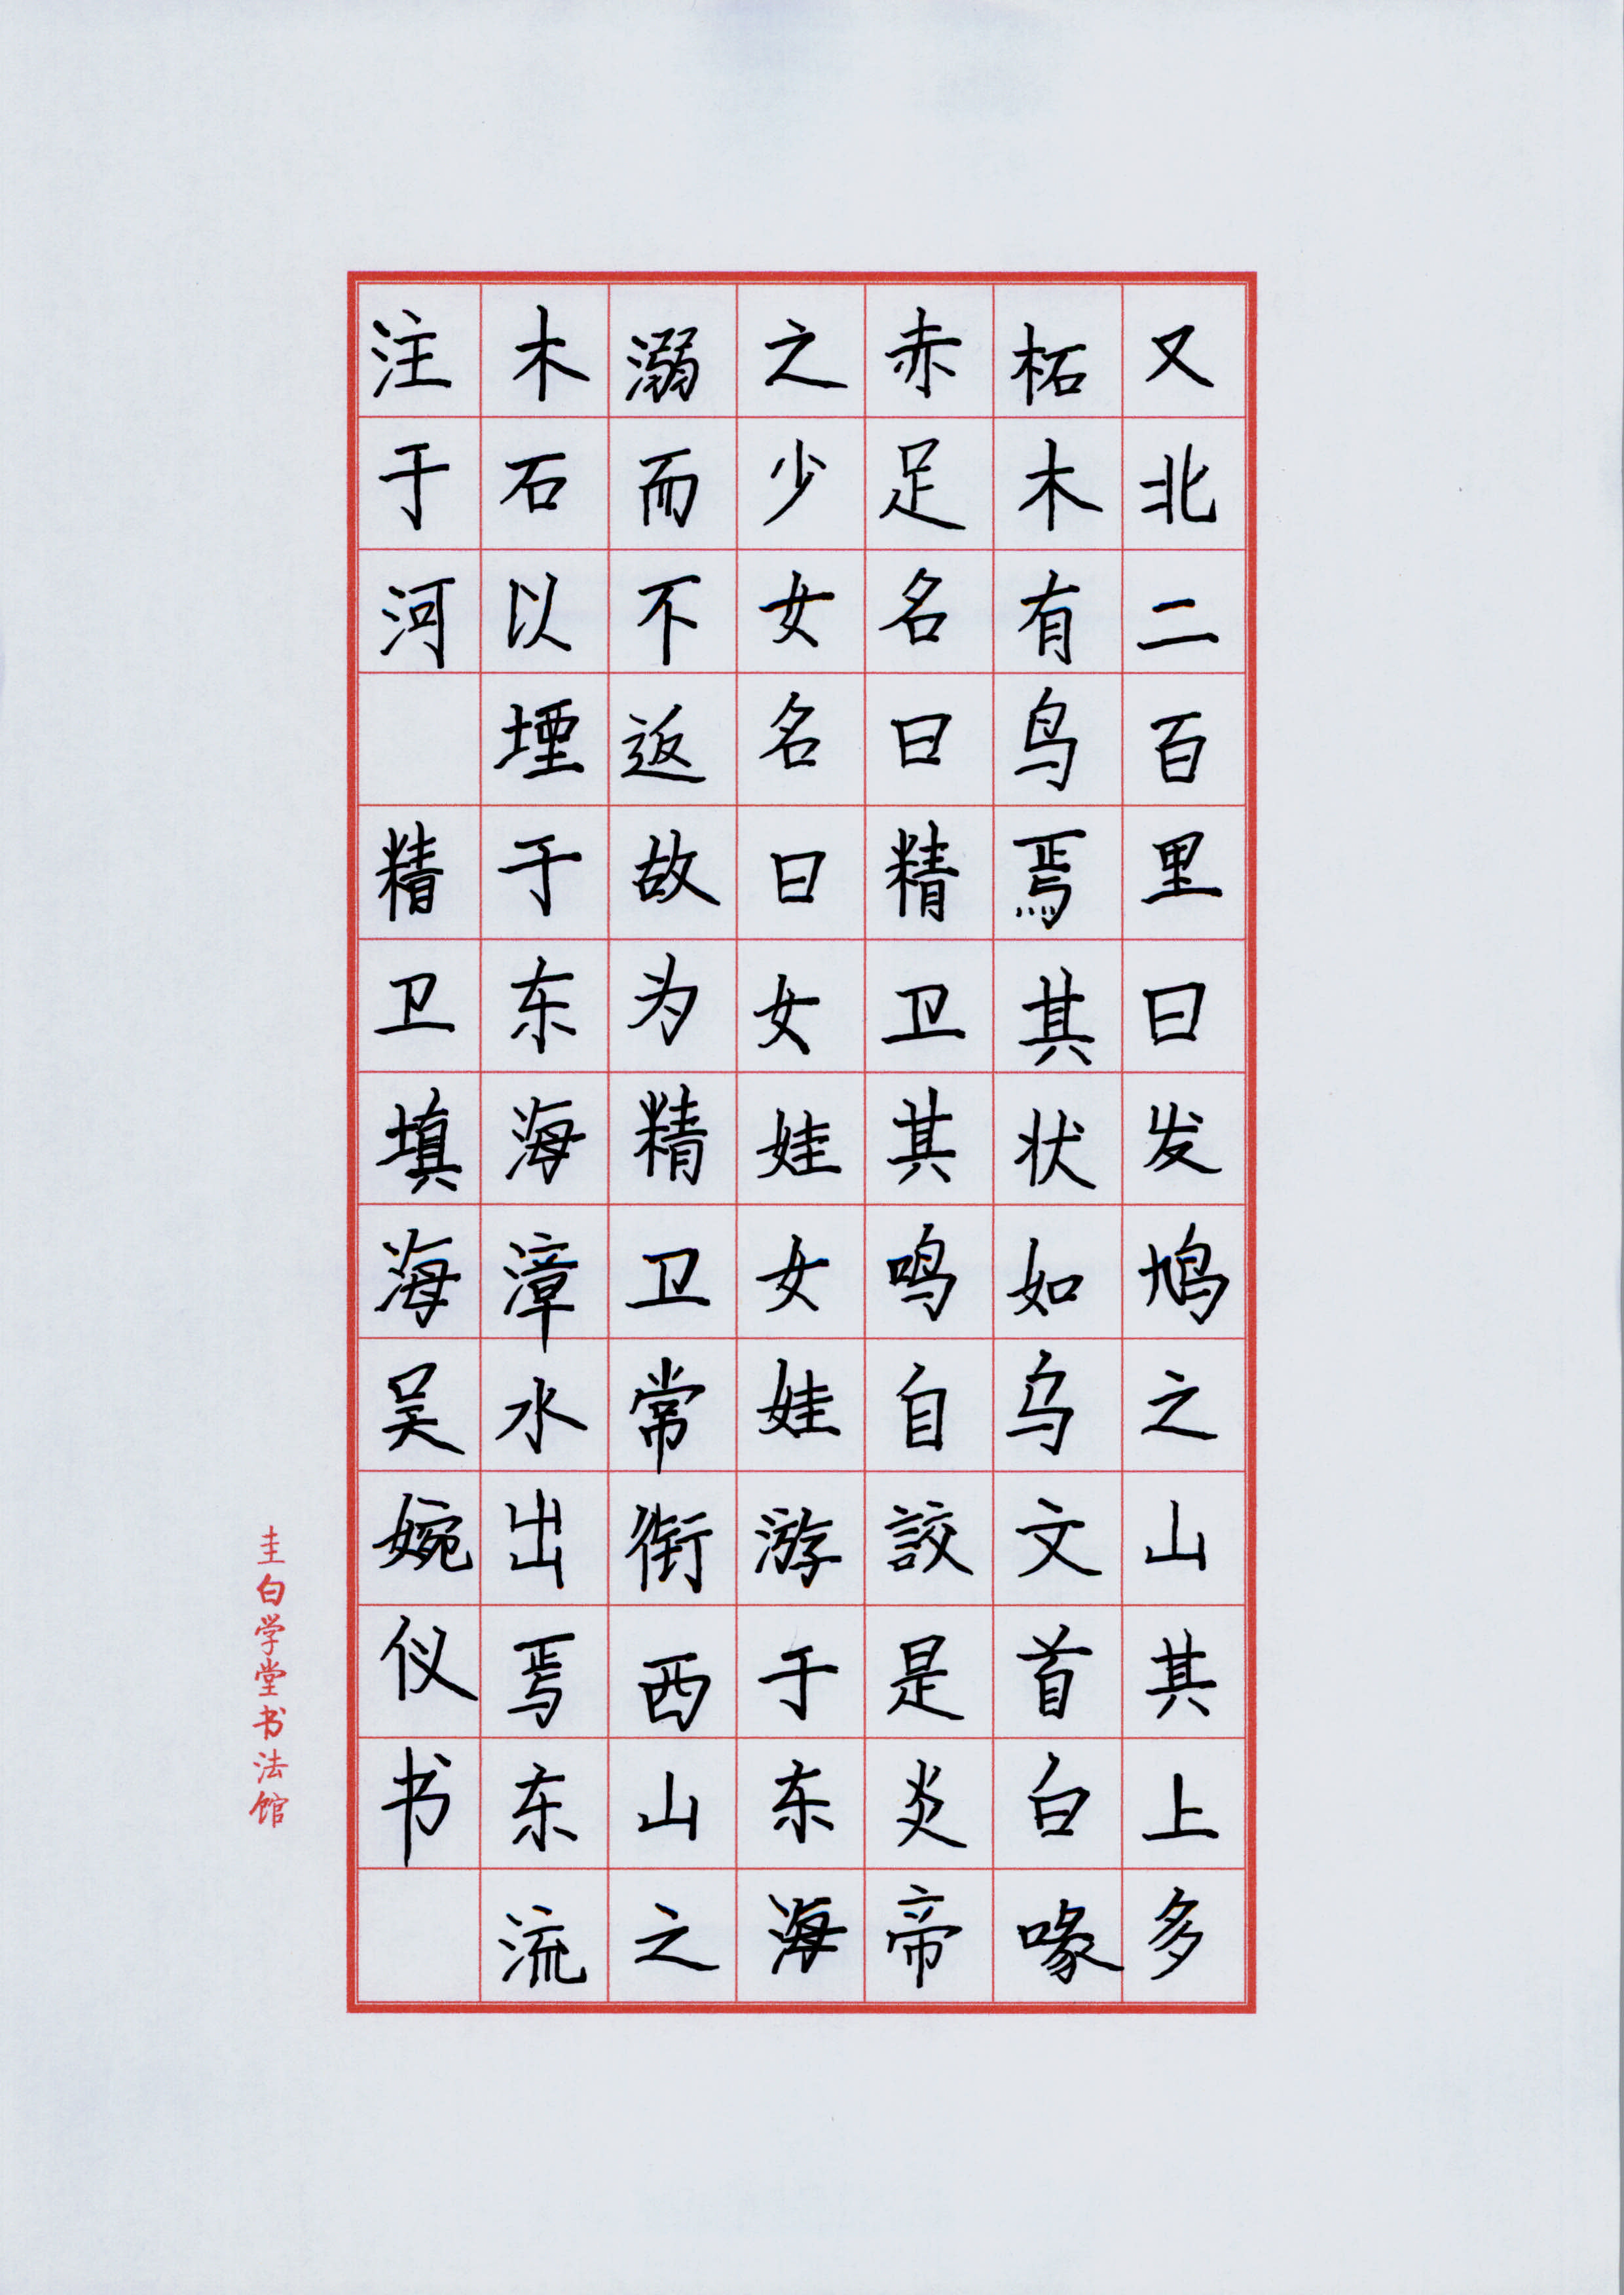 又北二百里曰发鸠之山其上多
柘木有鸟焉其状如乌文首白喙
赤足名曰精卫其鸣自詨是炎帝
之少女名曰女娃女娃游于东海
溺而不返故为精卫常衔西山之
木石以堙于东海漳水出焉东流
注于河 精卫填海吴婉仪书
圭白学堂书法馆